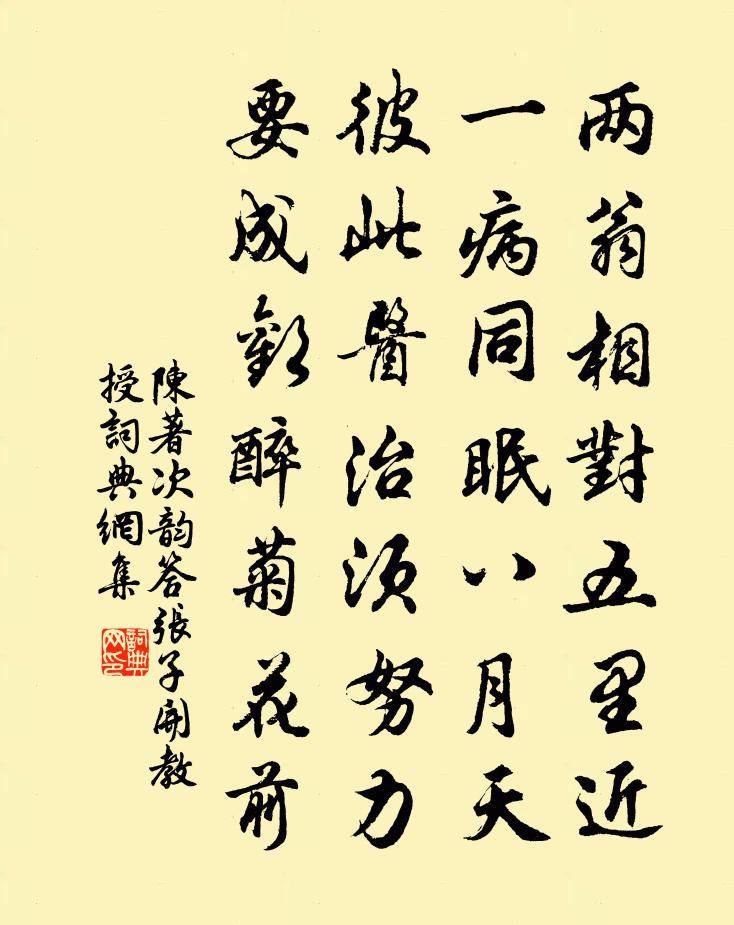 两翁相對五里近
一病同眠八月天
彼此醫治須努力
要成歡醉菊花前
陳著次韵答張子開教
授詞典網集
詞典網印